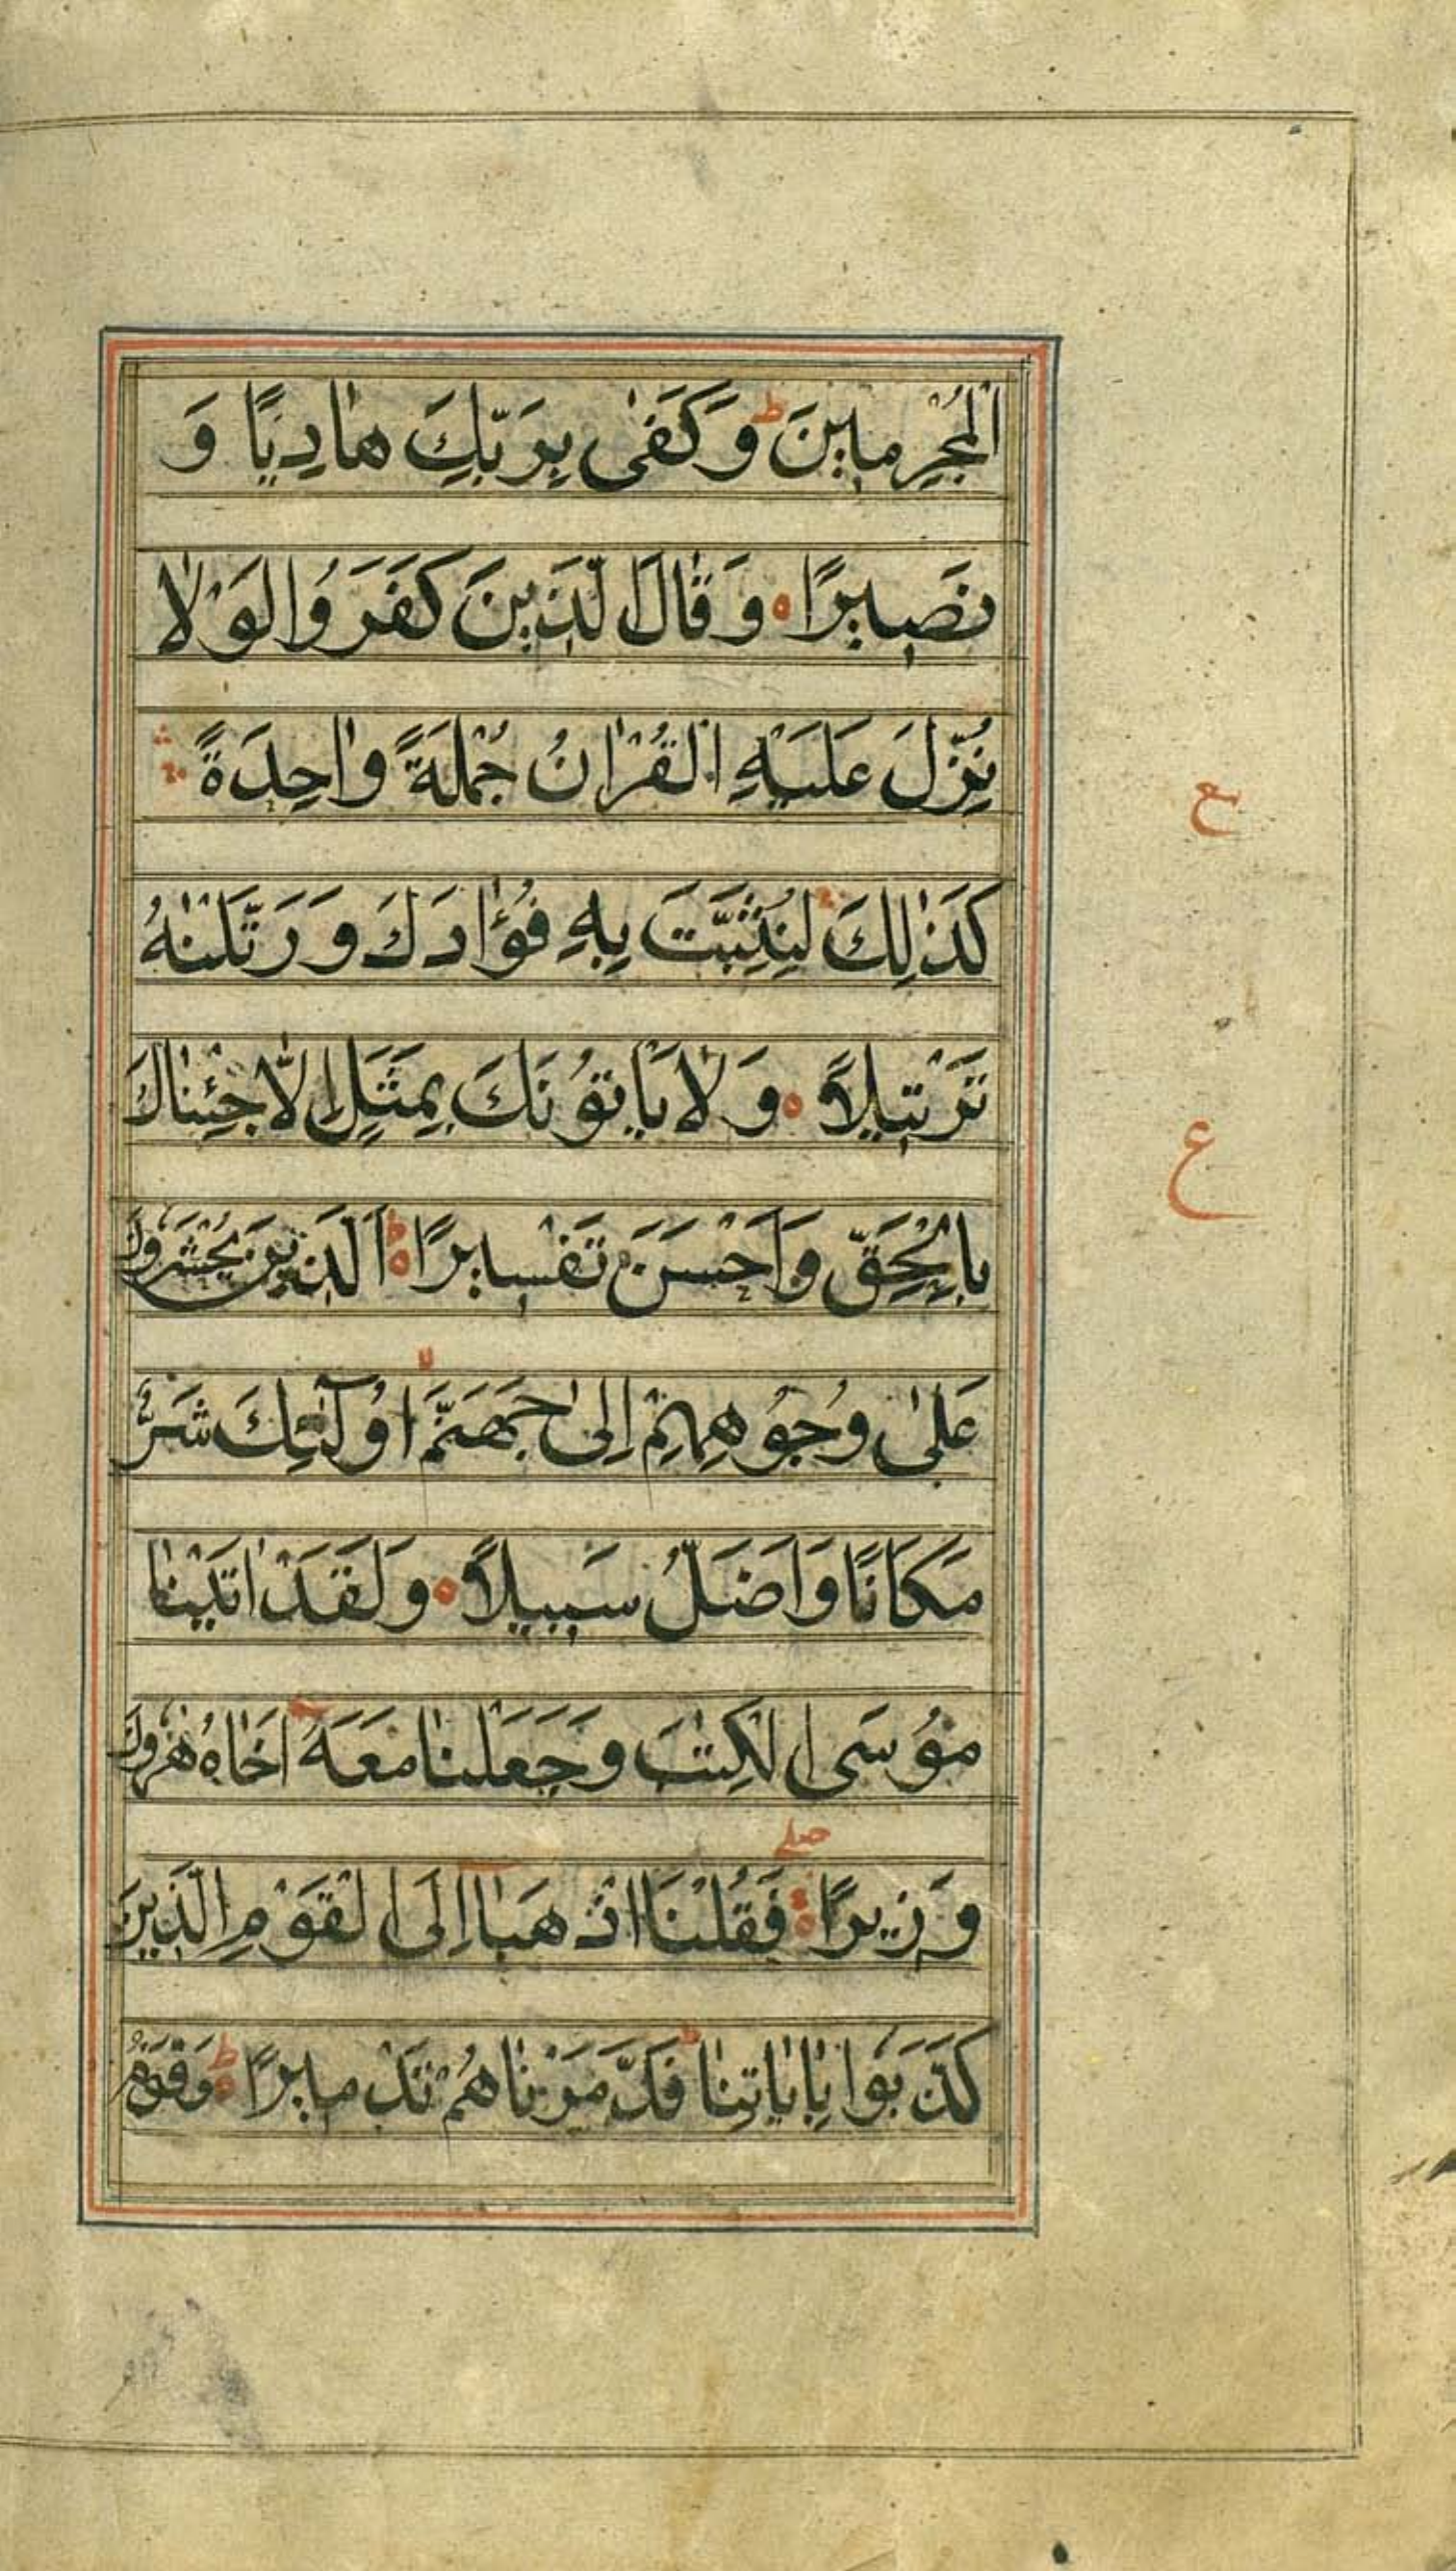 الْمُجْرِمِينَ ط وَكَفٰى بِرَبِّكَ هَادِيًا وَ
نَصِيرًا ۝ وَقَالَ الَّذِينَ كَفَرُوا لَوْلَا
نُزِّلَ عَلَيْهِ الْقُرْاٰنُ جُمْلَةً وَاحِدَةً ۛ
ع
كَذٰلِكَ ۛ لِنُثَبِّتَ بِهِ فُؤَادَكَ وَرَتَّلْنٰهُ
تَرْتِيلًا ۝ وَلَا يَاْتُوْنَكَ بِمَثَلٍ اِلَّا جِئْنَاكَ
ع
بِالْحَقِّ وَاَحْسَنَ تَفْسِيرًا ط الَّذِينَ يُحْشَرُونَ
عَلٰى وُجُوهِهِمْ اِلٰى جَهَنَّمَ لا اُولٰٓئِكَ شَرٌّ
مَكَانًا وَاَضَلُّ سَبِيلًا ۝ وَلَقَدْ اٰتَيْنَا
مُوسَى الْكِتٰبَ وَجَعَلْنَا مَعَهٗ اَخَاهُ هٰرُونَ
وَزِيرًا صلے فَقُلْنَا اذْهَبَا اِلَى الْقَوْمِ الَّذِينَ
كَذَّبُوا بِاٰيَاتِنَا ط فَدَمَّرْنَاهُمْ تَدْمِيرًا ط وَقَوْمَ